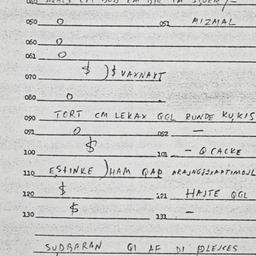 050 O 051 MIZMAL
060 O
061 O
070 $ )$ VAXNAXT
080 O
090 TORT CM LEKAX GGL RUNDE KUKIS
091 O 092 –
100 $ 101 – QCACKE
110 ESTINKE )HAM QAP
120 $ 121 HAJTE QGL
130 $ 131 –
SUDBARAN QI AF DI PLEJCES